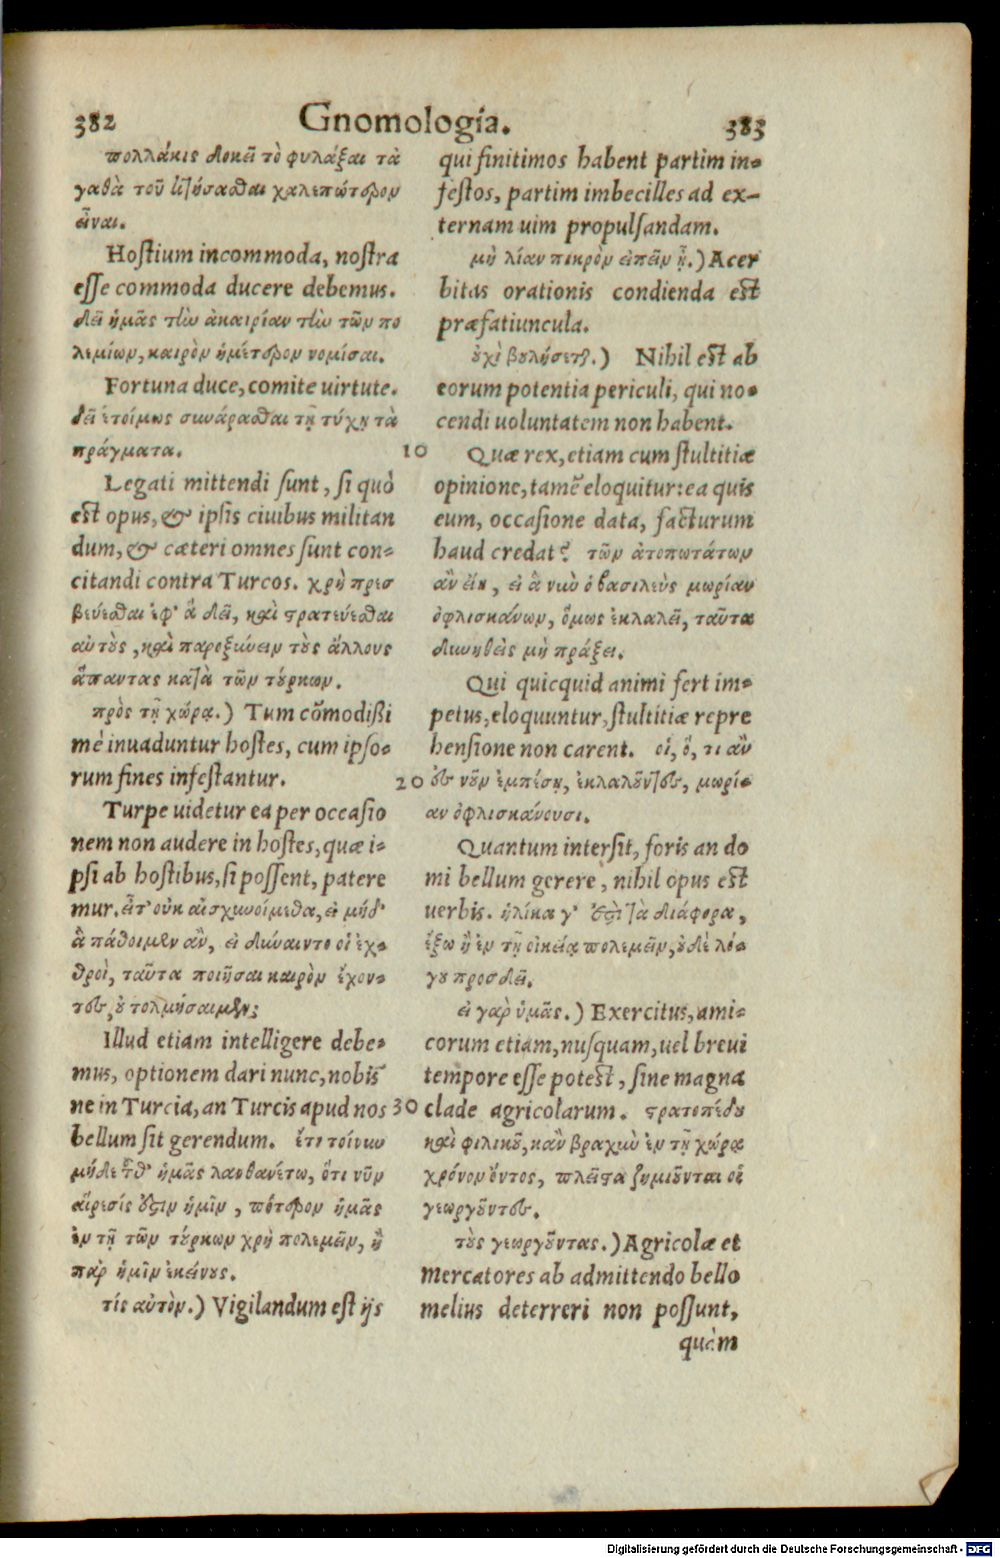 382
Gnomología.
383
πολλάκις δοκεῖ τὸ φυλάξαι τἀ
γαθὰ τοῦ κτήσασθαι χαλεπώτερον
εἶναι.
Hostium incommoda, nostra
esse commoda ducere debemus.
δεῖ ἡμᾶς τὴν ἀκαιρίαν τὴν τῶν πο
λεμίων, καιρὸν ἡμέτερον νομίσαι.
Fortuna duce, comite uirtute.
δεῖ ἑτοίμως συνάρασθαι τῇ τύχῃ τὰ
πράγματα.
Legati mittendi sunt, si quò
est opus, & ipsis ciuibus militan
dum, & cæteri omnes sunt con-
citandi contra Turcos. χρὴ πρεσ
βεύεσθαι ἐφ' ἃ δεῖ, καὶ στρατεύεσθαι
αὐτοὺς, καὶ παροξύνειν τοὺς ἄλλους
ἅπαντας κατὰ τῶν τούρκων.
πρὸς τῇ χώρᾳ.) Tum cõmodißi
mè inuaduntur hostes, cum ipso-
rum fines infestantur.
Turpe uidetur ea per occasio
nem non audere in hostes, quæ i-
psi ab hostibus, si possent, patere
mur. εἶτ' οὐκ αἰσχυνοίμεθα, εἰ μήδ'
ἃ πάθοιμεν ἂν, εἰ δύναιντο οἱ ἐχ-
θροὶ, ταῦτα ποιῆσαι καιρὸν ἔχον-
τες, οὐ τολμήσαιμεν;
Illud etiam intelligere debe-
mus, optionem dari nunc, nobis
ne in Turcia, an Turcis apud nos
bellum sit gerendum. ἔτι τοίνυν
μηδὲ τοῦθ' ἡμᾶς λανθανέτω, ὅτι νῦν
αἵρεσίς ἐστιν ἡμῖν, πότερον ἡμᾶς
ἐν τῇ τῶν τούρκων χρὴ πολεμεῖν, ἢ
παρ' ἡμῖν ἐκείνους.
τίς αὐτὸν.) Vigilandum est ijs
qui finitimos habent partim in-
festos, partim imbecilles ad ex-
ternam uim propulsandam.
μὴ λίαν πικρὸν εἰπεῖν ᾖ.) Acer
bitas orationis condienda est
præfatiuncula.
οὐχὶ βουλήσεται.) Nihil est ab
eorum potentia periculi, qui no-
cendi uoluntatem non habent.
10 Quæ rex, etiam cum stultitiæ
opinione, tamẽ eloquitur: ea quis
eum, occasione data, facturum
haud credat? τῶν ἀτοπωτάτων
ἂν εἴη, εἰ ἃ νῦν ὁ βασιλεὺς μωρίαν
ὀφλισκάνων, ὅμως ἐκλαλεῖ, ταῦτα
δυνηθεὶς μὴ πράξει.
Qui quicquid animi fert im-
petus, eloquuntur, stultitiæ repre
hensione non carent. οἱ, ὅ, τι ἂν
20 ἐς νοῦν ἐμπέσῃ, ἐκλαλοῦντες, μωρί-
αν ὀφλισκάνουσι.
Quantum intersit, foris an do
mi bellum gerere, nihil opus est
uerbis. ἡλίκα γ' ἐστὶ τὰ διάφορα,
ἔξω ἢ ἐν τῇ οἰκείᾳ πολεμεῖν, οὐδὲ λό-
γου προσδεῖ.
εἰ γαρ ὑμᾶς.) Exercitus, ami-
corum etiam, nusquam, uel breui
tempore esse potest, sine magna
30 clade agricolarum. στρατοπέδου
καὶ φιλικοῦ, κἂν βραχὺν ἐν τῇ χώρᾳ
χρόνον ὄντος, πλεῖστα ζημιοῦνται οἱ
γεωργοῦντες.
τοὺς γεωργοῦντας.) Agricolæ et
mercatores ab admittendo bello
melius deterreri non possunt,
quàm
Digitalisierung gefördert durch die Deutsche Forschungsgemeinschaft - DFG